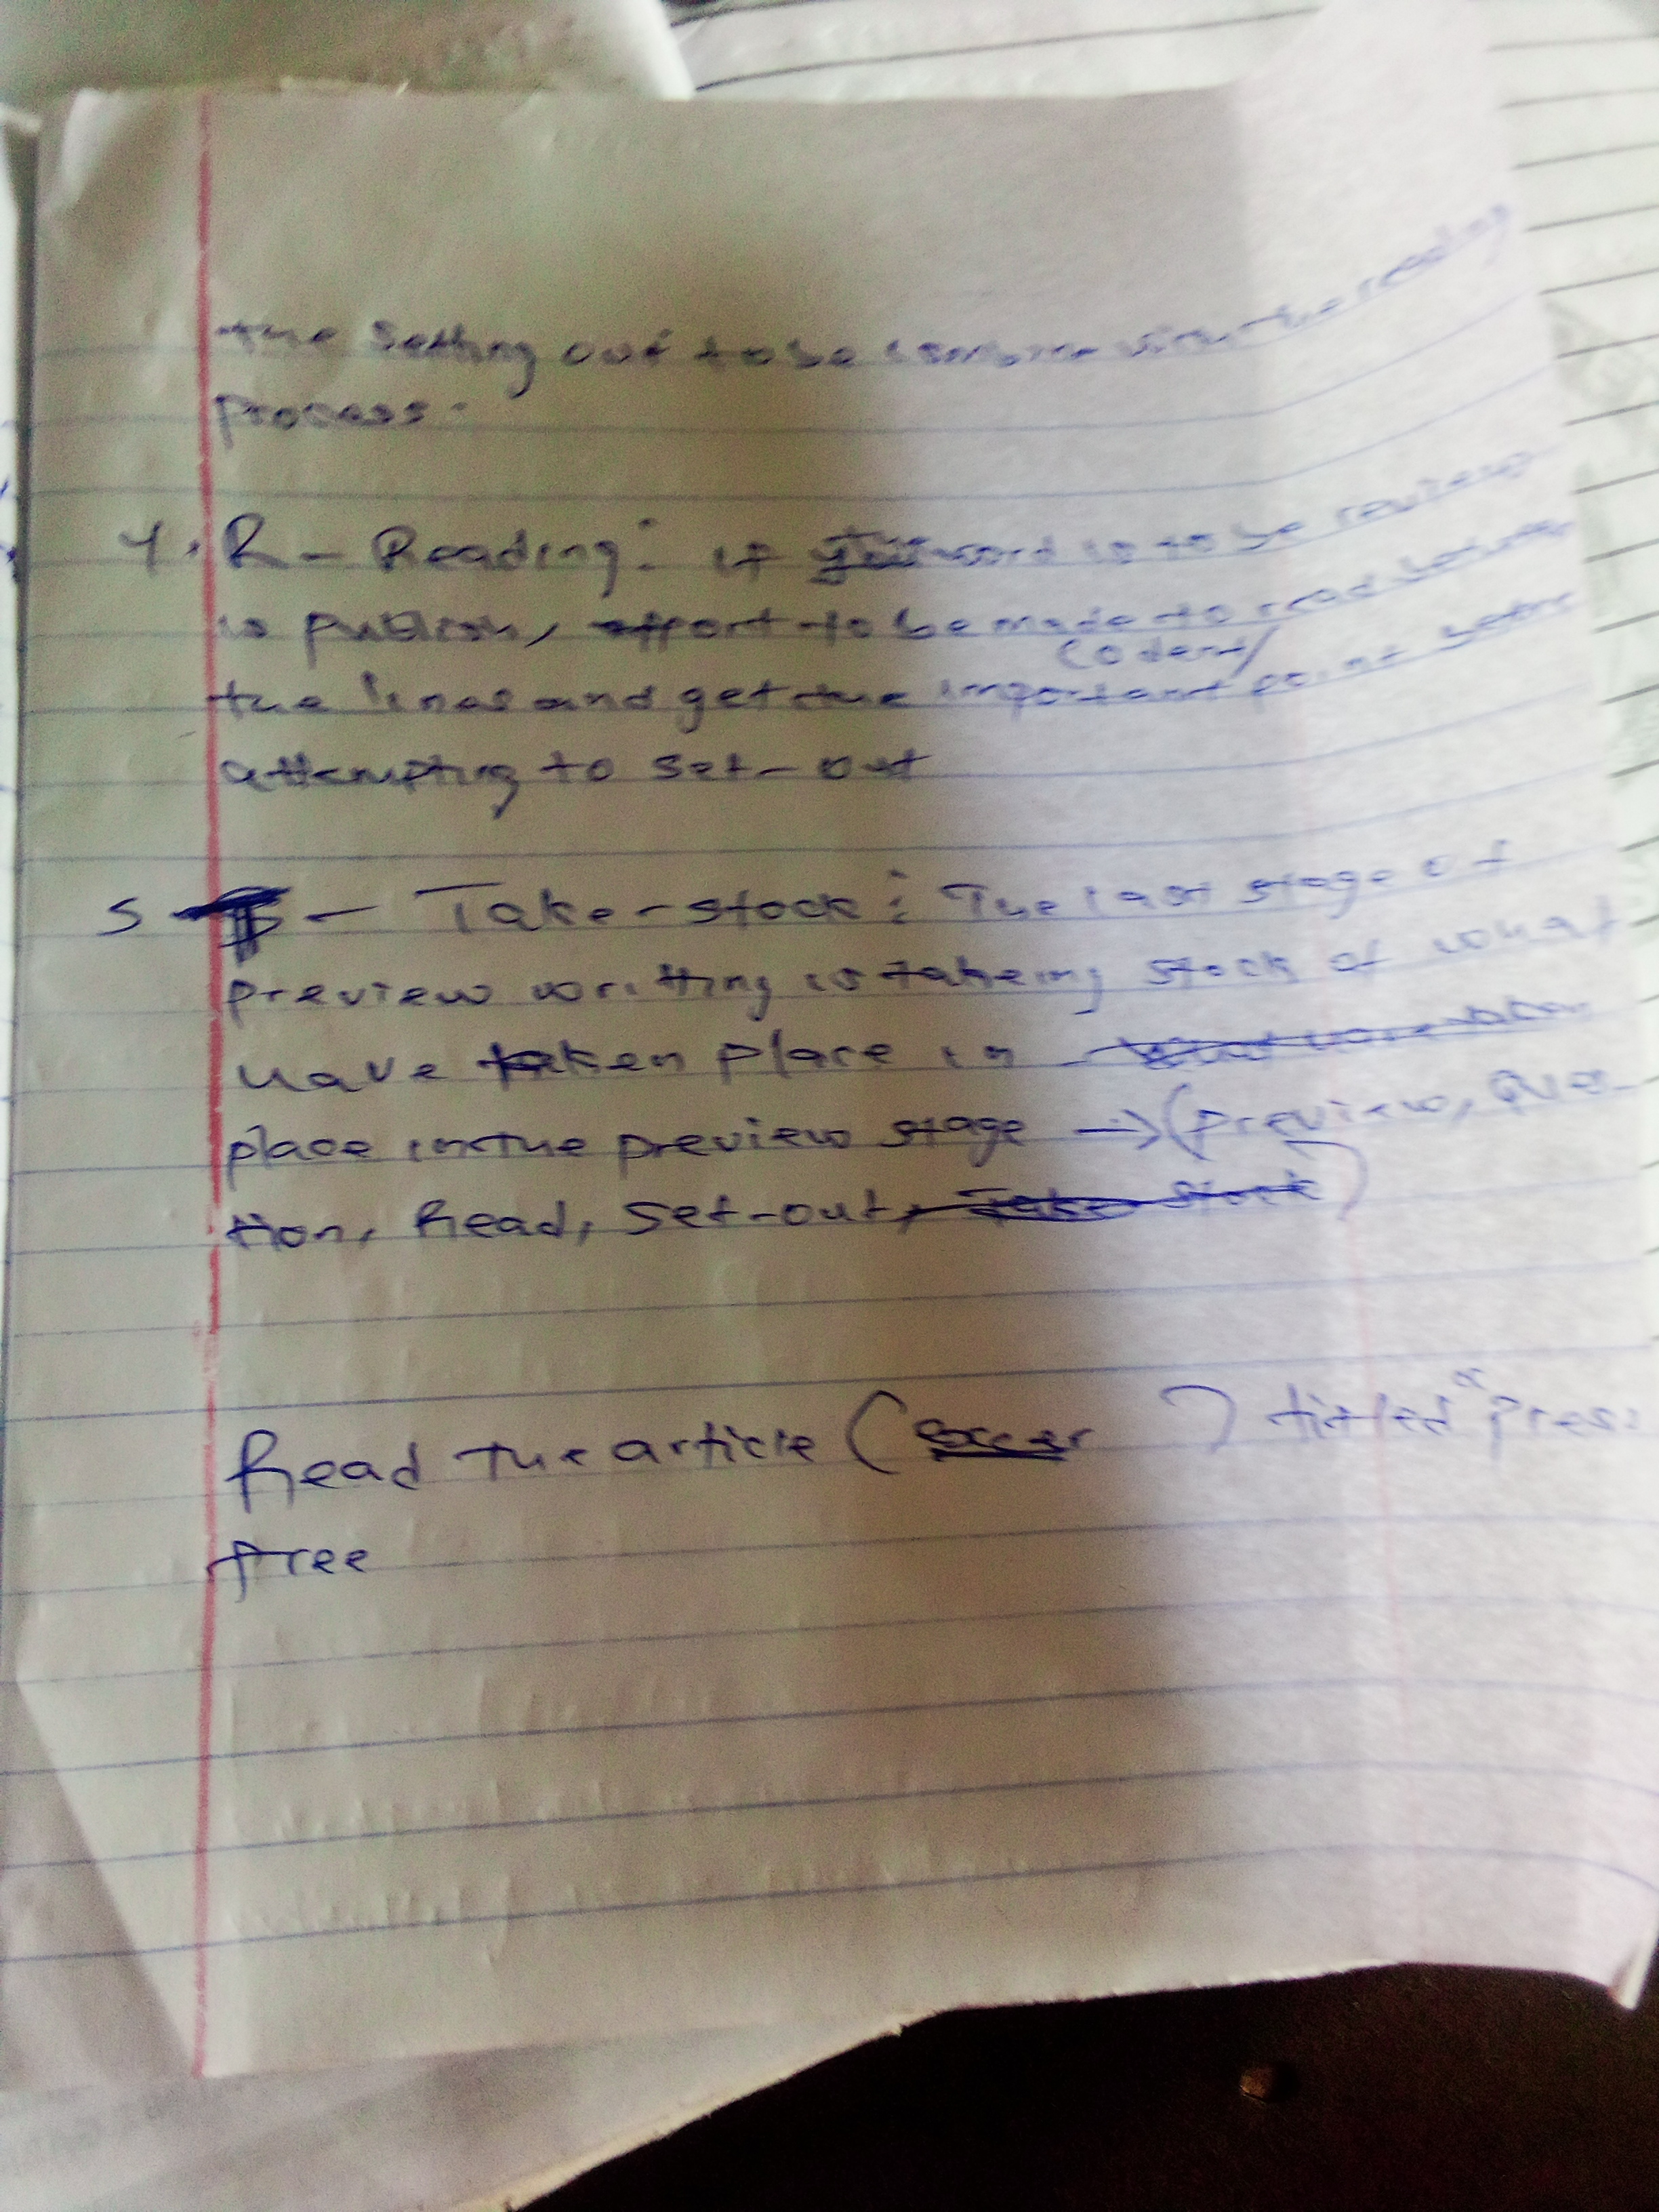 the setting out to be combine with the reading
process.
4. R - Reading: if word is to be review
is publish, effort to be made to read
(odent/
the lines and get the important point before
attempting to set-out
5 - Take-stock: The last stage of
preview writting is takeing stock of what
have taken place in
place in the preview stage → (preview, Ques-
tion, Read, Set-out, Take stock)
Read the article ( ) titled "press
free